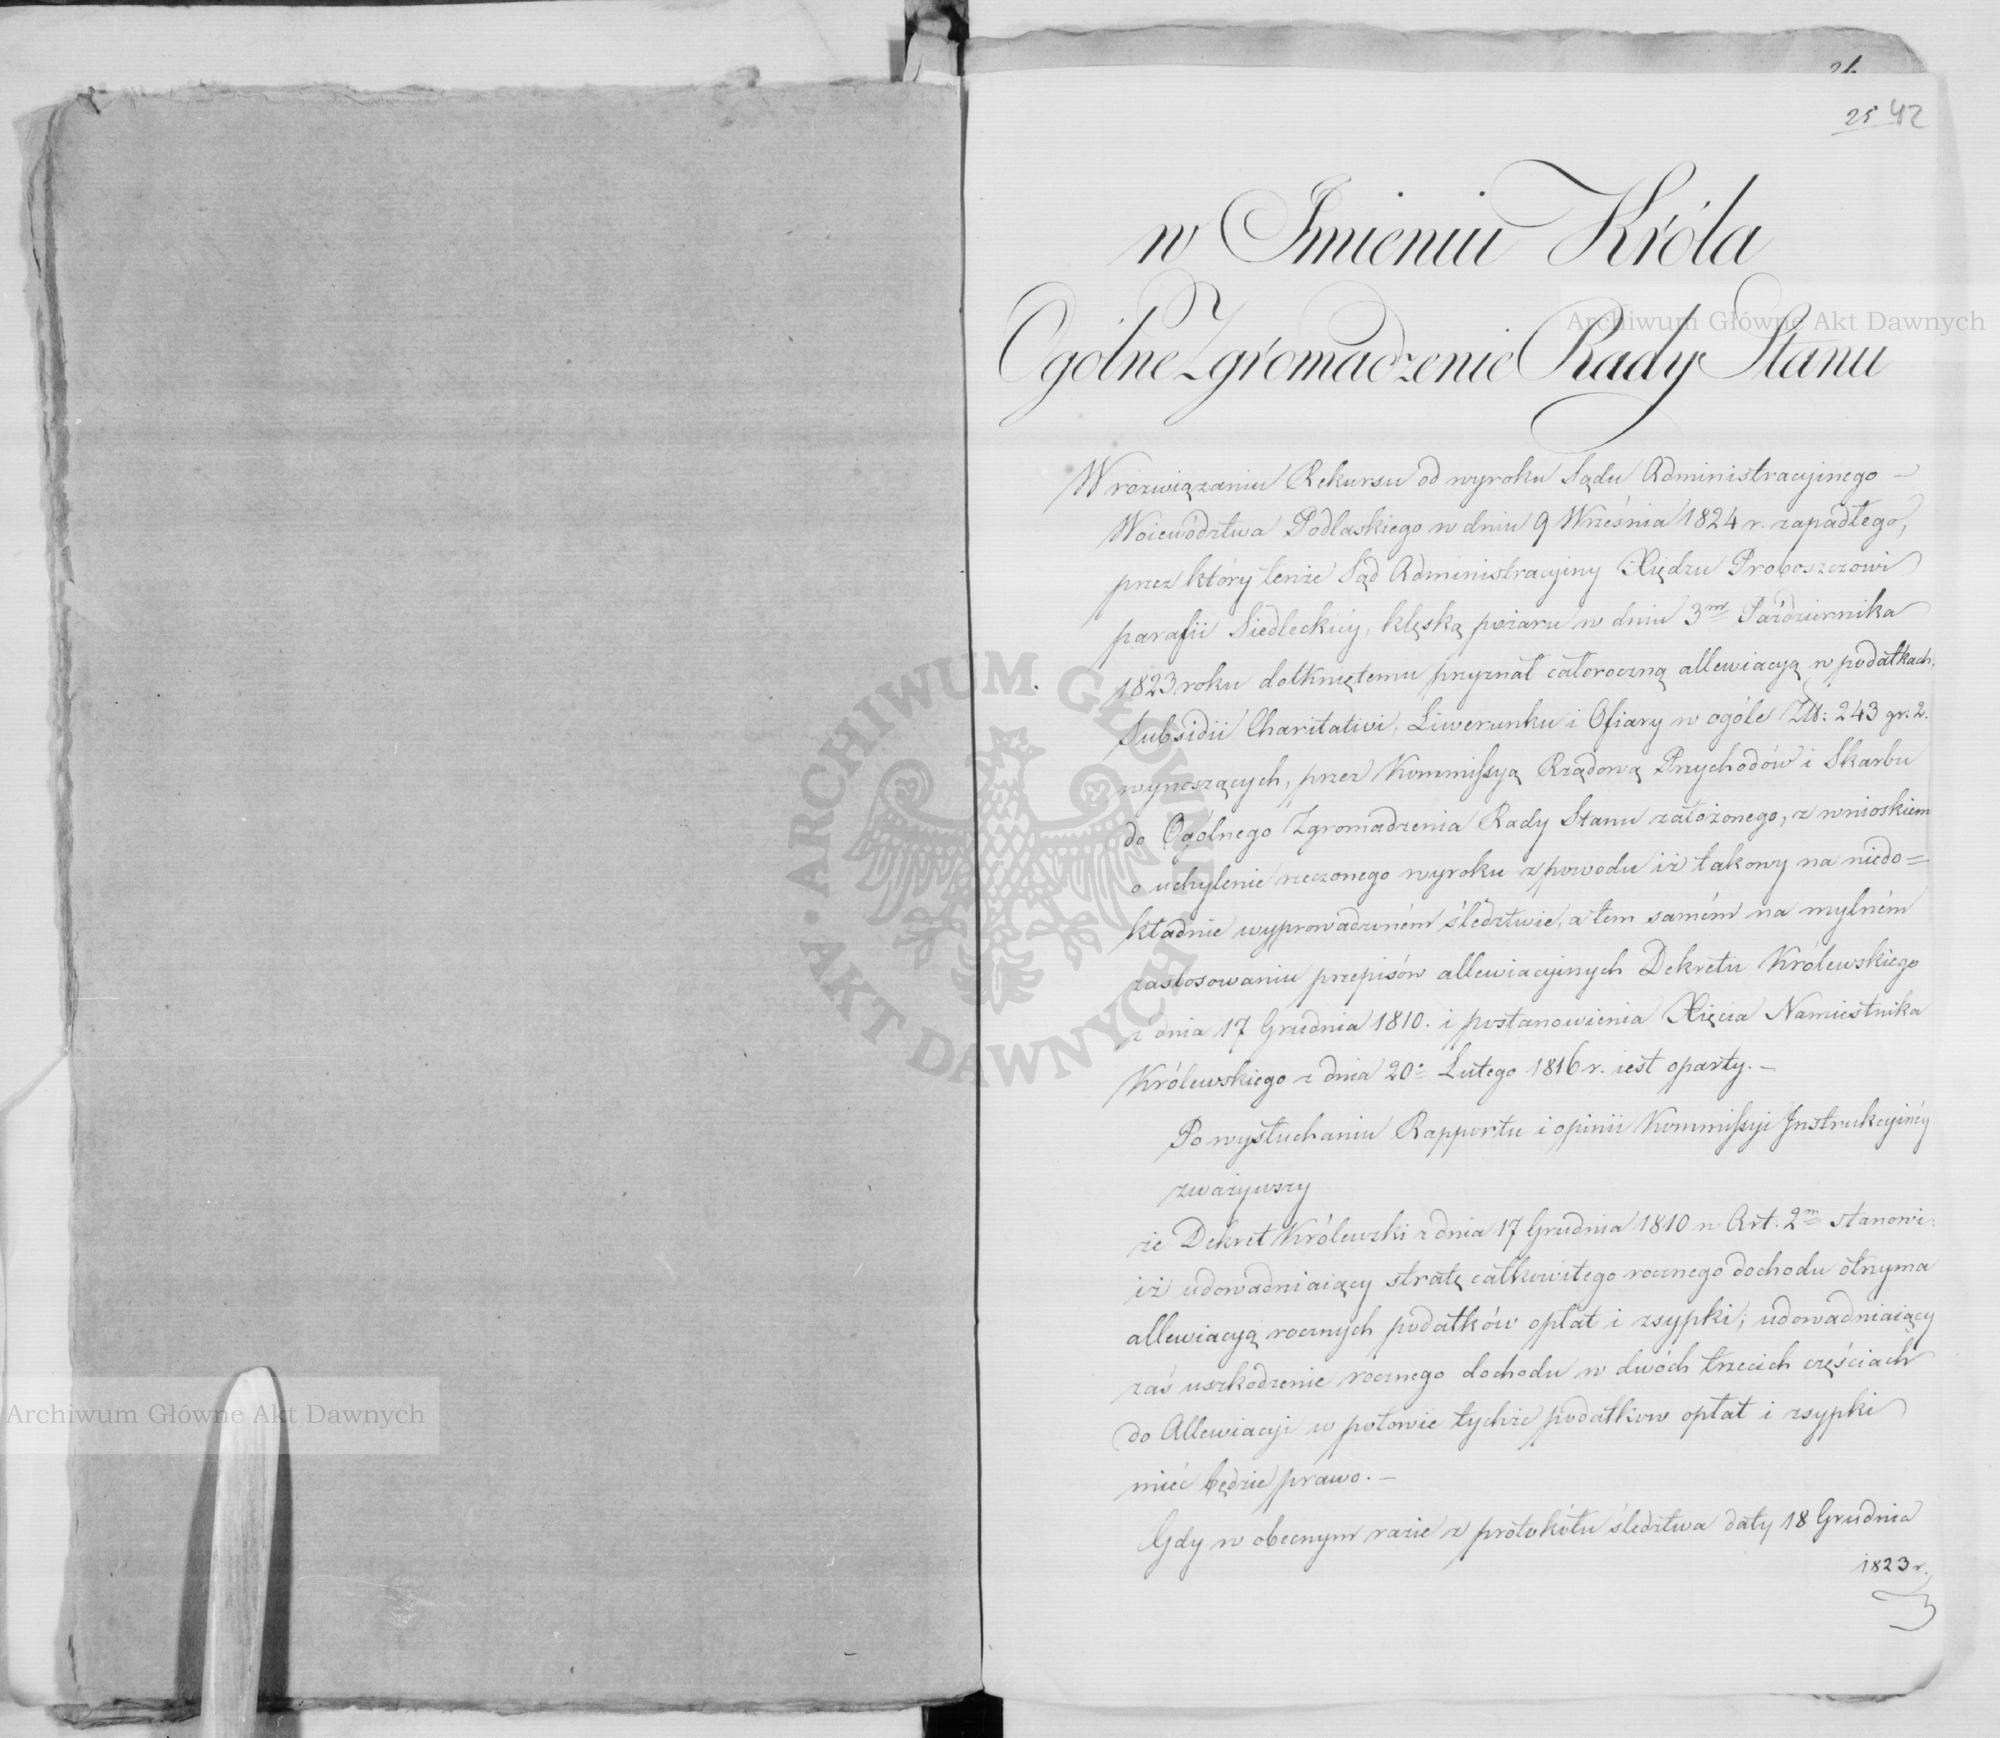 21.
25 42
w Imieniu Króla
Ogólne Zgromadzenie Rady Stanu
W rozwiązaniu Rekursu od wyroku Sądu Administracyinego –
Woiewództwa Podlaskiego w dniu 9 Września 1824 r. zapadłego,
przez który tenże Sąd Administracyiny Xiędzu Proboszczowi
parafii Siedleckiéy, klęską pożaru w dniu 3m Października
1823 roku dotkniętemu przyznał całoroczną allewiacyą w podatkach,
Subsidii Charitativi, Liwerunku i Ofiary w ogóle Złł: 243 gr. 2.
wynoszących, przez Kommissyą Rządową Przychodów i Skarbu
do Ogólnego Zgromadzenia Rady Stanu założonego, z wnioskiem
o uchylenie rzeczonego wyroku z powodu iż takowy na niedo=
kładnie wyprowadzoném śledztwie, a tem samém na mylném
zastosowaniu przepisów allewiacyinych Dekretu Królewskiego
z dnia 17 Grudnia 1810. i postanowienia Xięcia Namiestnika
Królewskiego z dnia 20. Lutego 1816 r. iest oparty. –
Po wysłuchaniu Rapportu i opinii Kommissyi Instrukcyinéy
zważywszy
że Dekret Królewski z dnia 17 Grudnia 1810 w Art. 2m stanowi:
iż udowadniaiący stratę całkowitego rocznego dochodu otrzyma
allewiacyą rocznych podatków opłat i zsypki; udowadniaiący
zaś uszkodzenie rocznego dochodu w dwóch trzecich częściach
do Allewiacyi w połowie tychże podatkow opłat i zsypki
mieć będzie prawo. –
Gdy w obecnym razie z protokółu śledztwa daty 18 Grudnia
1823 r.
Archiwum Główne Akt Dawnych
Archiwum Główne Akt Dawnych
ARCHIWUM GŁÓWNE AKT DAWNYCH